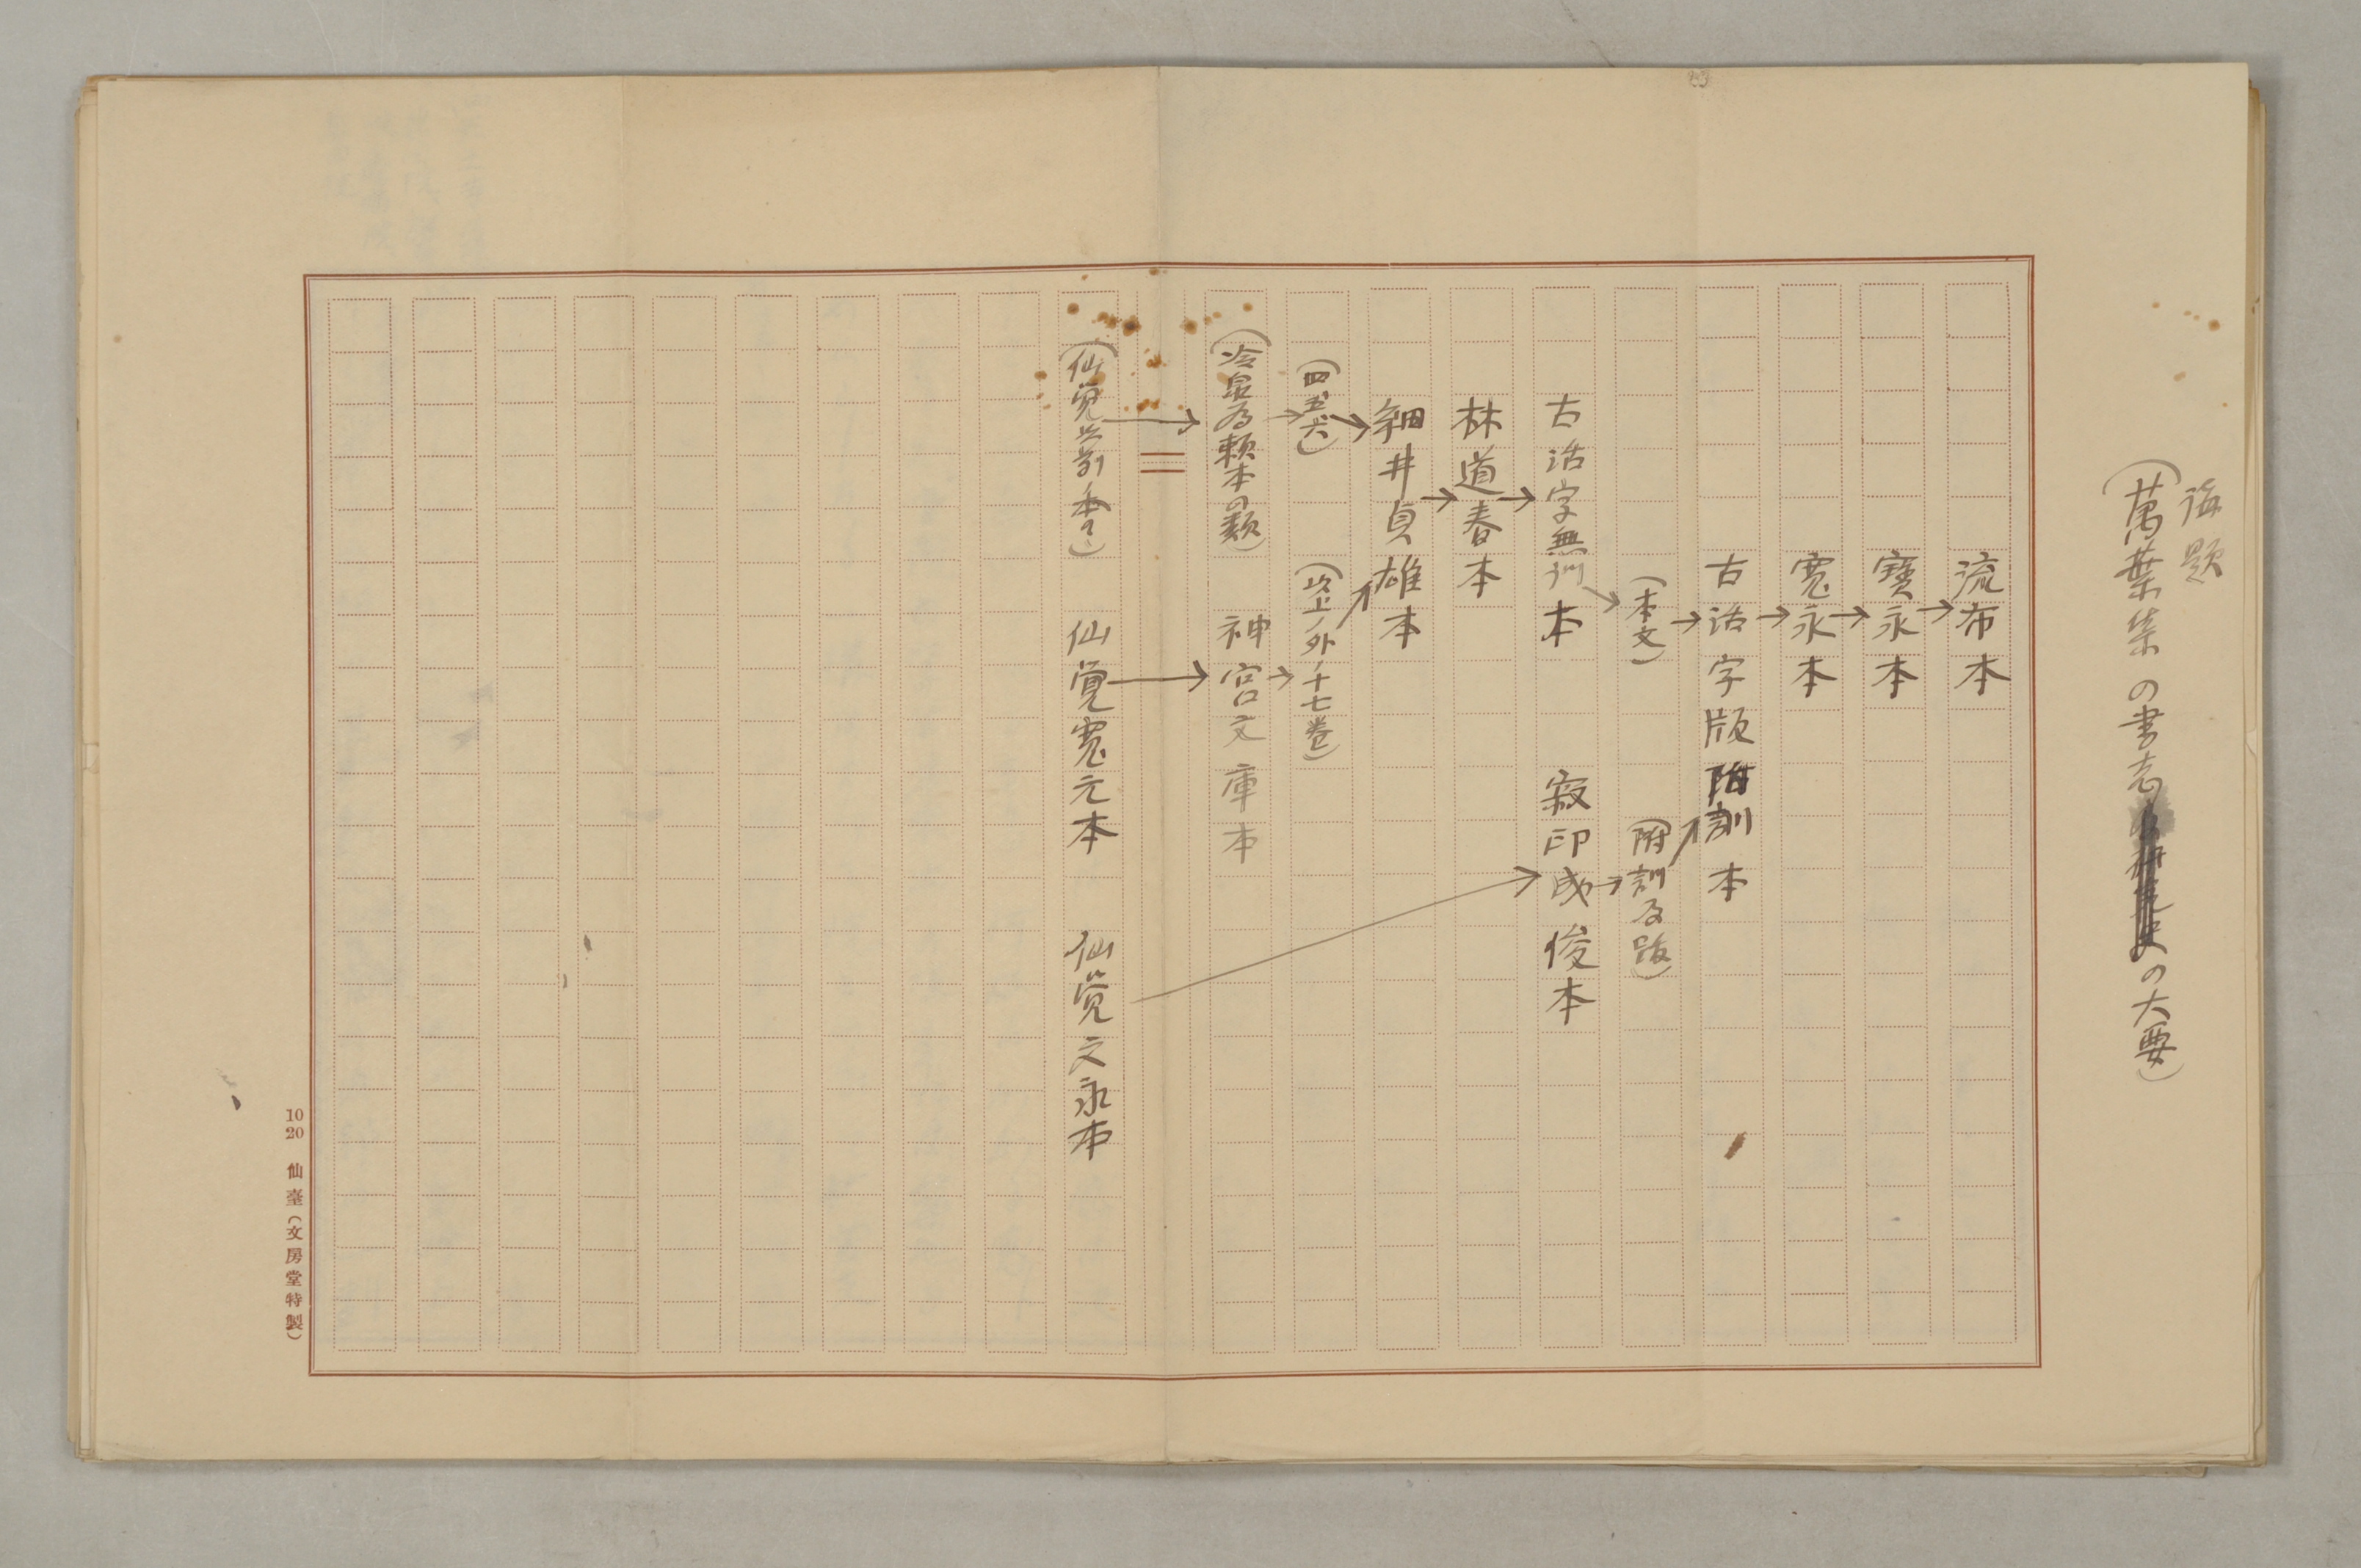 論題
(萬葉集の書志の大要)
流布本
寶永本
寛永本
古活字版附訓本
(本文)
(附訓及跋)
古活字無訓本
寂印成俊本
林道春本
細井貞雄本
(四、五、六)
(以上ノ外ノ十七巻)
(冷泉為頼本の類)
神宮文庫本
(仙覚以前本)
仙覚寛元本
仙覚文永本
10 20 仙臺(文房堂特製)